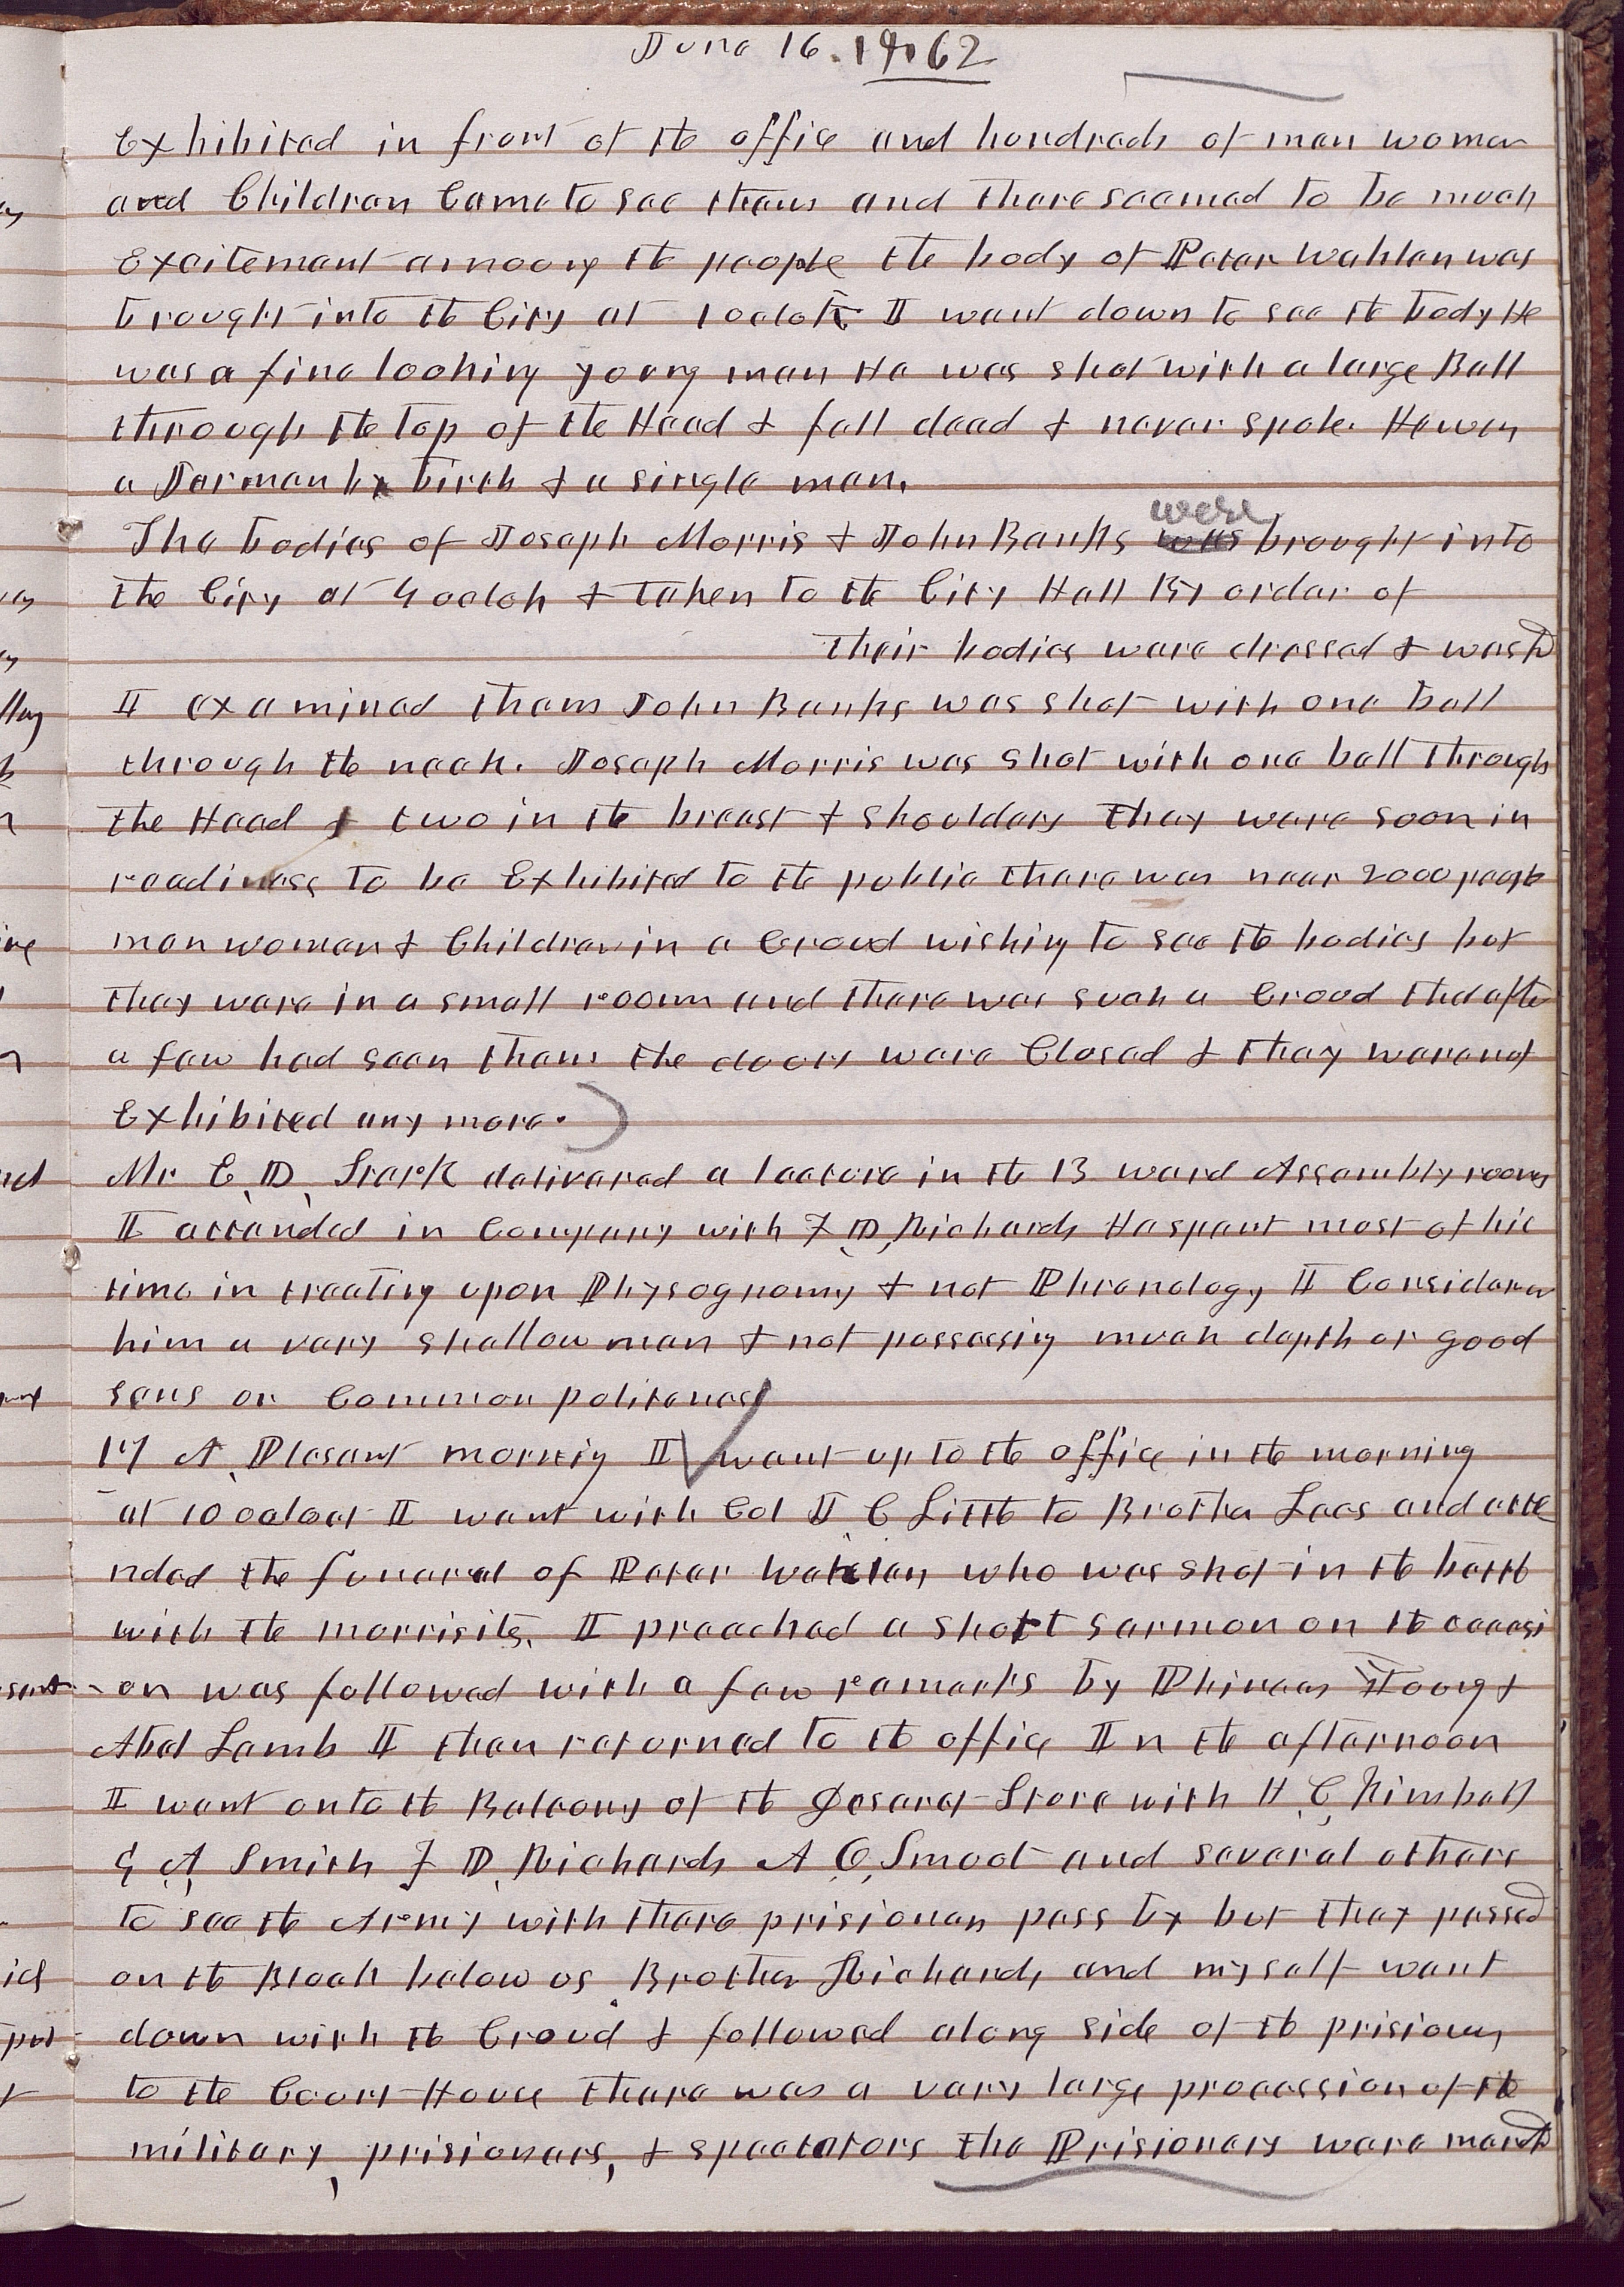 June 16. 1862
Exhibited in front of the office and hundreds of men women
and Children Came to see them and there seemed to be much
Excitement amoong the people the body of Peter Wahlen was
brought into the City at 1 oclok I went down to see the body He
was a fine looking young man He was shot with a large Ball
through the top of the Head & fell dead & never spoke. He was
a German by birth & a single man.
The bodies of Joseph Morris & John Banks were was brought into
the City at 4 oclok & taken to the City Hall By order of
their bodies were dressed & washd
I examined them John Banks was shot with one ball
through the neck. Joseph Morris was shot with one ball through
the Head & two in the breast & shoulders they were soon in
readiness to be Exhibited to the public there was near 2000 people
men women & Children in a Croud wishing to see the bodies but
they were in a small room and there was such a Croud that after
a few had seen them the doors were Closed & they were not
Exhibited any more.
Mr E, D, Stark delivered a lecture in the 13 ward Assembly rooms
I attended in Company with F, D, Richards He spent most of his
time in treating upon Physognomy & not Phrenology I Considered
him a very shallow man & not possessing much depth or good
sens or Common politeness
17 A, Plesant morning I went up to the office in the morning
at 10 ocloct I went with Col J C Little to Brother Lees and atte
nded the funeral of Peter Wahlan who was shot in the battle
with the morrisits. I preached a short sermon on the occasi
-on was followed with a few remarks by Phineas Young &
Abel Lamb I then returned to the office In the afternoon
I went onto the Balcony of the Deseret Store with H, C, Kimball
G, A, Smith F D, Richards A O, Smoot and several others
to see the Army with there prisioners pass by but they passed
on the Block below us Brother Richards and myself went
down with the Croud & followed along side of the prisioners
to the Court House there was a very large procession of the
military, prisioners, & spectators the Prisioners were marchd